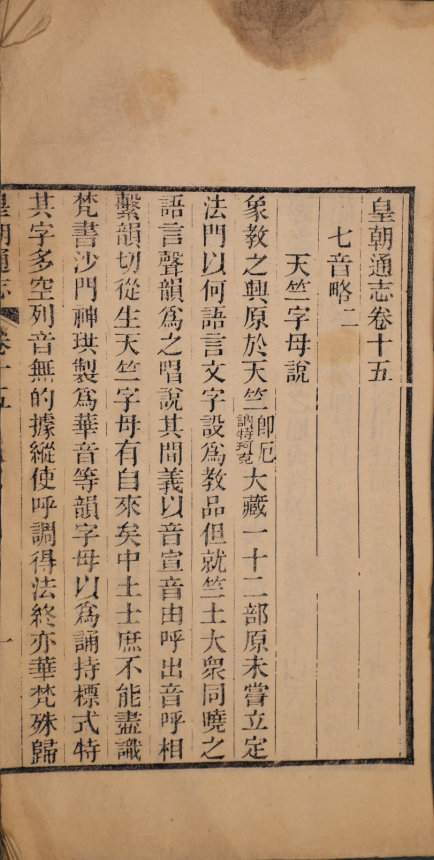 皇朝通志卷十五
七音略二
天竺字母說
象教之興原於天竺即厄訥特珂克大藏一十二部原未嘗立定
法門以何語言文字設爲教品但就竺土大衆同曉之
語言聲韻爲之唱說其間義以音宣音由呼出音呼相
繫韻切從生天竺字母有自來矣中土士庶不能盡識
梵書沙門神珙製爲華音等韻字母以爲誦持標式特
其字多空列音無的據縱使呼調得法終亦華梵殊歸
皇朝通志 卷十五 一